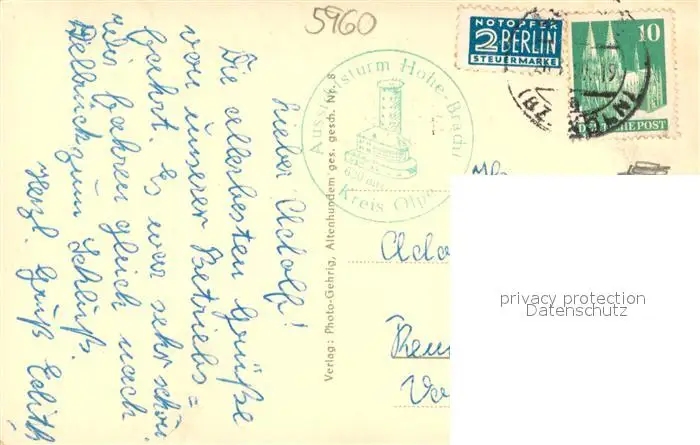 5960
NOTOPFER
2 BERLIN
STEUERMARKE
10
DEUTSCHE POST
(BZ. KÖLN)
Aussichtsturm Hohe-Bracht
620 m
Kreis Olpe
Lieber Adolf!
Die allerbesten Grüße
von unserer Betriebs=
fahrt. Es war sehr schön
Wir fahren gleich nach
Delbrück zum Schluß.
Herzl. Gruß Edith
Verlag: Photo-Gehrig, Altenhundem ges. gesch. Nr. 8
privacy protection
Datenschutz